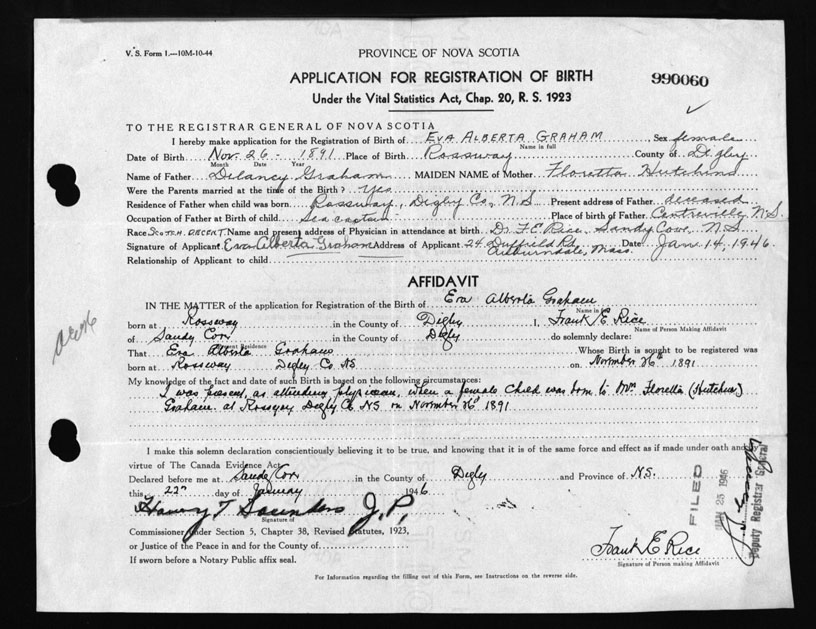 V.S. Form 1.—10M-10-44
PROVINCE OF NOVA SCOTIA
APPLICATION FOR REGISTRATION OF BIRTH
990060
Under the Vital Statistics Act, Chap. 20, R. S. 1923
TO THE REGISTRAR GENERAL OF NOVA SCOTIA
I hereby make application for the Registration of Birth of EVA ALBERTA GRAHAM Sex female
Name in full
Date of Birth Nov. 26 - 1891 Place of Birth Rossway County of Digby
Month Date Year
Name of Father Delancy Graham MAIDEN NAME of Mother Floretta Hutchins
Were the Parents married at the time of the Birth? Yes
Residence of Father when child was born Rossway, Digby Co, N.S. Present address of Father deceased
Occupation of Father at Birth of child Sea captain Place of birth of Father Centreville, N.S.
Race SCOTCH DESCENT Name and present address of Physician in attendance at birth Dr. F. E. Rice, Sandy Cove, N.S
Signature of Applicant Eva Alberta Graham Address of Applicant 24 Duffield Rd, Auburndale, Mass. Date Jan 14, 1946.
Relationship of Applicant to child
AFFIDAVIT
IN THE MATTER of the application for Registration of the Birth of Eva Alberta Graham
Name in full
born at Rossway in the County of Digby I, Frank E Rice
Name of Person Making Affidavit
of Sandy Cove in the County of Digby do solemnly declare:
Present Residence
That Eva Alberta Graham Whose Birth is sought to be registered was
born at Rossway Digby Co. NS on November 26th 1891
My knowledge of the fact and date of such Birth is based on the following circumstances:
I was present, as attending physician, when a female child was born to Mrs Floretta (Hutchins)
Graham at Rossway Digby Co NS on November 26th 1891
I make this solemn declaration conscientiously believing it to be true, and knowing that it is of the same force and effect as if made under oath and by
virtue of The Canada Evidence Act.
Declared before me at Sandy Cove in the County of Digby and Province of N.S.
this 22nd day of January 1946
Harvey T Saunders J.P.
Signature of
Commissioner under Section 5, Chapter 38, Revised Statutes, 1923,
or Justice of the Peace in and for the County of
If sworn before a Notary Public affix seal.
Frank E Rice
Signature of Person making Affidavit
For Information regarding the filling out of this Form, see Instructions on the reverse side.
FILED
JAN 25 1946
Deputy Registrar General